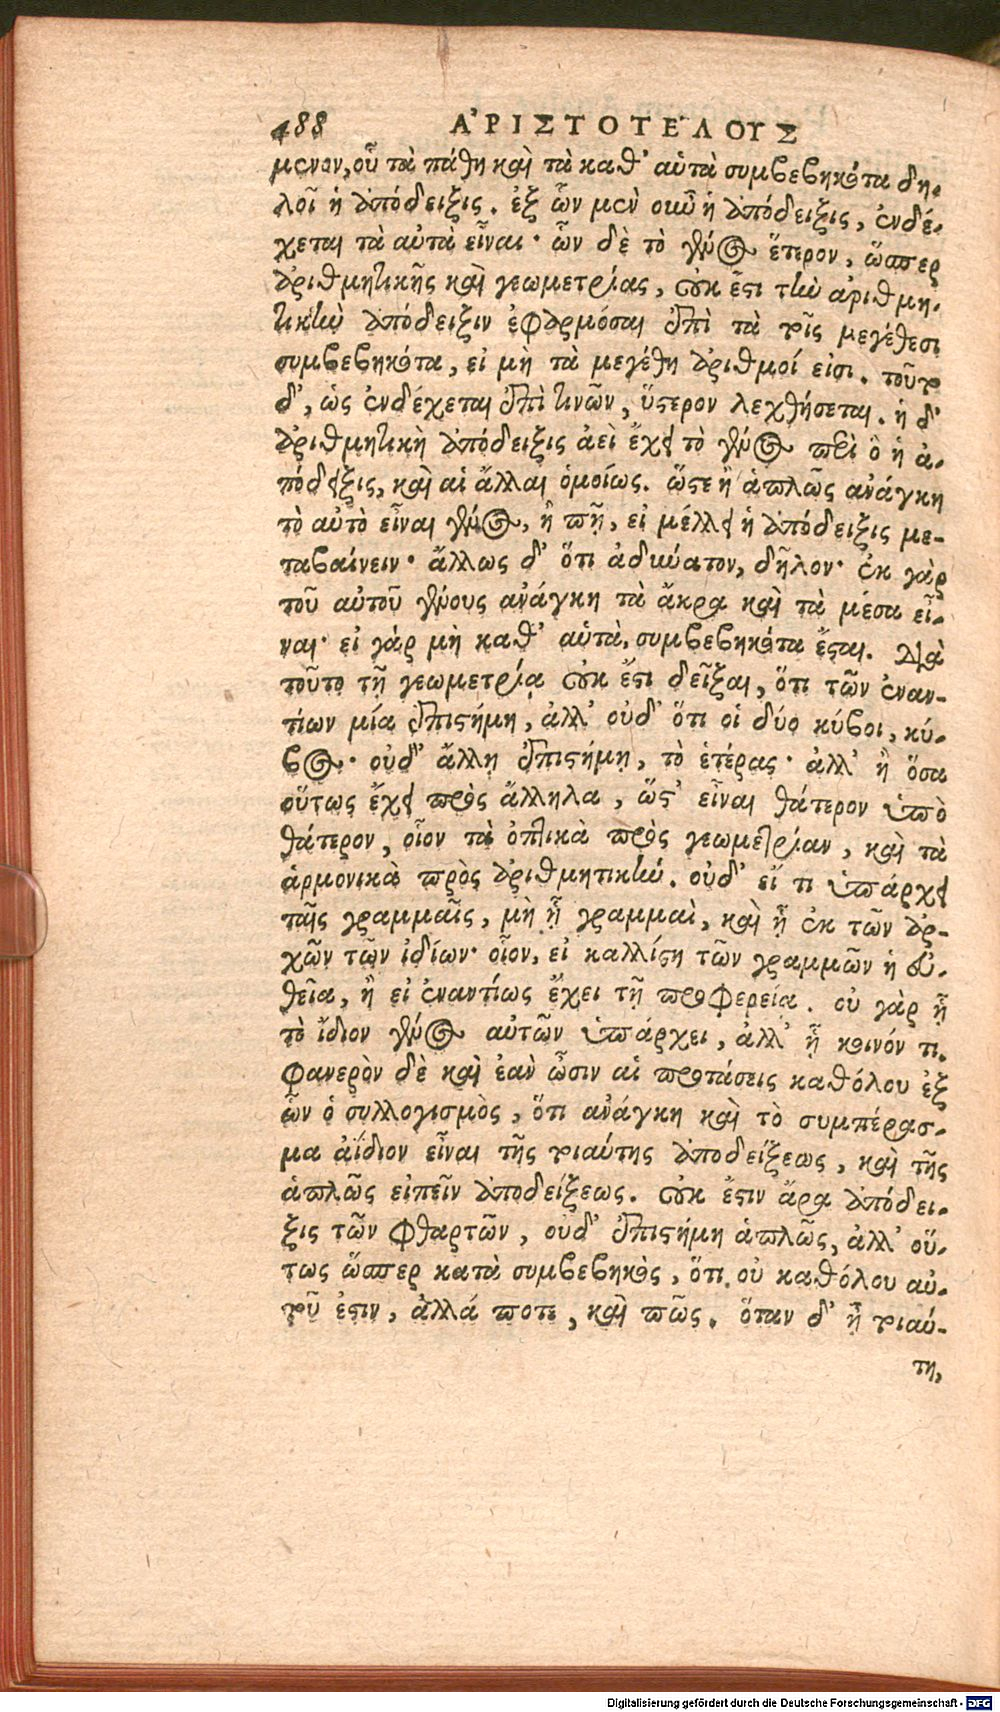 488 ἈΡΙΣΤΟΤΕΛΟΥΣ
μενον, οὗ τὰ πάθη καὶ τὰ καθ' αὑτὰ συμβεβηκότα δη-
λοῖ ἡ ἀπόδειξις. ἐξ ὧν μὲν οὖν ἡ ἀπόδειξις, ἐνδέ-
χεται τὰ αὐτὰ εἶναι· ὧν δὲ τὸ γένος ἕτερον, ὥσπερ
ἀριθμητικῆς καὶ γεωμετρίας, οὐκ ἔστι τὴν ἀριθμη-
τικὴν ἀπόδειξιν ἐφαρμόσαι ἐπὶ τὰ τοῖς μεγέθεσι
συμβεβηκότα, εἰ μὴ τὰ μεγέθη ἀριθμοί εἰσι. τοῦτο
δ', ὡς ἐνδέχεται ἐπὶ τινῶν, ὕστερον λεχθήσεται. ἡ δ'
ἀριθμητικὴ ἀπόδειξις ἀεὶ ἔχει τὸ γένος περὶ ὃ ἡ ἀ-
πόδειξις, καὶ αἱ ἄλλαι ὁμοίως. ὥστε ἢ ἁπλῶς ἀνάγκη
τὸ αὐτὸ εἶναι γένος, ἢ πῇ, εἰ μέλλει ἡ ἀπόδειξις με-
ταβαίνειν· ἄλλως δ' ὅτι ἀδύνατον, δῆλον· ἐκ γὰρ
τοῦ αὐτοῦ γένους ἀνάγκη τὰ ἄκρα καὶ τὰ μέσα εἶ-
ναι· εἰ γάρ μὴ καθ' αὑτὰ, συμβεβηκότα ἔσται. διὰ
τοῦτο τῇ γεωμετρίᾳ οὐκ ἔστι δεῖξαι, ὅτι τῶν ἐναν-
τίων μία ἐπιστήμη, ἀλλ' οὐδ' ὅτι οἱ δύο κύβοι, κύ-
βος· οὐδ' ἄλλῃ ἐπιστήμῃ, τὸ ἑτέρας· ἀλλ' ἢ ὅσα
οὕτως ἔχει πρὸς ἄλληλα, ὥστ' εἶναι θάτερον ὑπὸ
θάτερον, οἷον τὰ ὀπτικὰ πρὸς γεωμετρίαν, καὶ τὰ
ἁρμονικὰ πρὸς ἀριθμητικήν. οὐδ' εἴ τι ὑπάρχει
ταῖς γραμμαῖς, μὴ ᾗ γραμμαὶ, καὶ ᾗ ἐκ τῶν ἀρ-
χῶν τῶν ἰδίων· οἷον, εἰ καλλίστη τῶν γραμμῶν ἡ εὐ-
θεῖα, ἢ εἰ ἐναντίως ἔχει τῇ προφερείᾳ. οὐ γὰρ ᾗ
τὸ ἴδιον γένος αὐτῶν ὑπάρχει, ἀλλ' ᾗ κοινόν τι.
Φανερὸν δὲ καὶ ἐὰν ὦσιν αἱ προτάσεις καθόλου ἐξ
ὧν ὁ συλλογισμὸς, ὅτι ἀνάγκη καὶ τὸ συμπέρασ-
μα ἀΐδιον εἶναι τῆς τοιαύτης ἀποδείξεως, καὶ τῆς
ἁπλῶς εἰπεῖν ἀποδείξεως. οὐκ ἔστιν ἄρα ἀπόδει-
ξις τῶν φθαρτῶν, οὐδ' ἐπιστήμη ἁπλῶς, ἀλλ' οὕ-
τως ὥσπερ κατὰ συμβεβηκὸς, ὅτι οὐ καθόλου αὐ-
τοῦ ἐστιν, ἀλλά ποτε, καὶ πῶς. ὅταν δ' ᾖ τοιαύ-
τη,
Digitalisierung gefördert durch die Deutsche Forschungsgemeinschaft - DFG